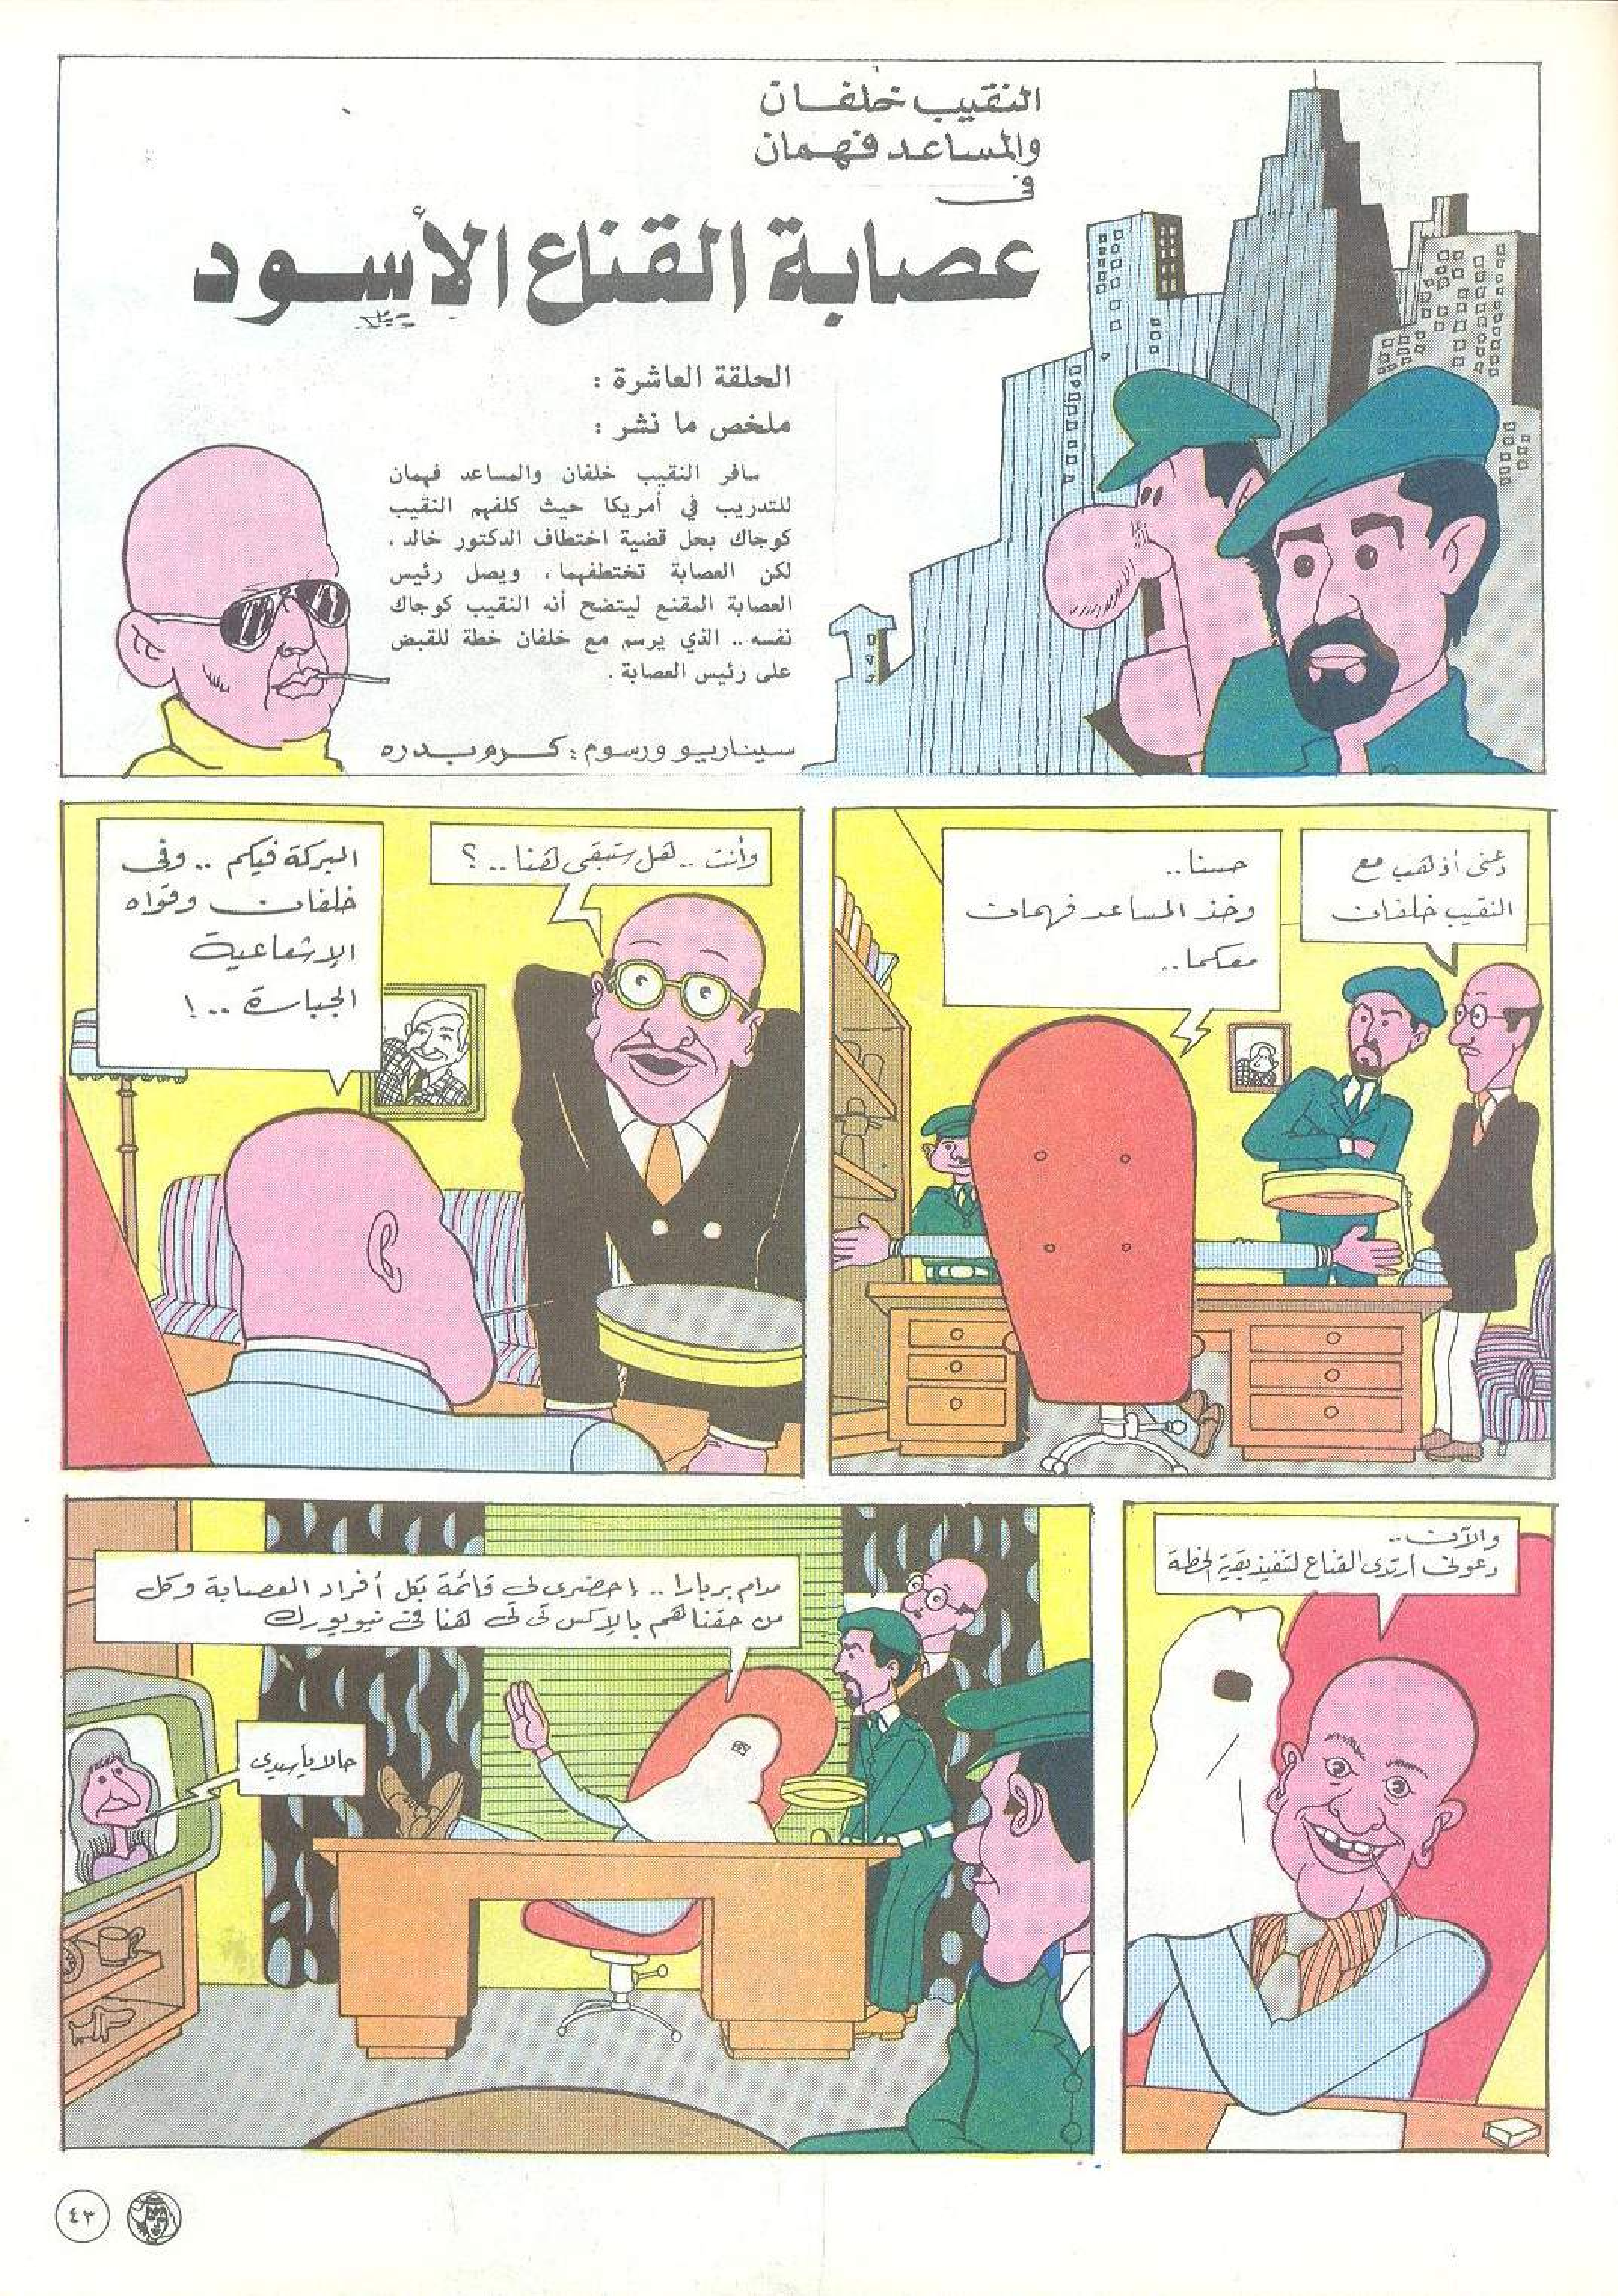 النقيب خلفان
والمساعد فهمان
فى
عصابة القناع الأسود
الحلقة العاشرة :
ملخص ما نشر :
سافر النقيب خلفان والمساعد فهمان
للتدريب في أمريكا حيث كلفهم النقيب
كوجاك بحل قضية اختطاف الدكتور خالد .
لكن العصابة تختطفهما ، ويصل رئيس
العصابة المقنع ليتضح أنه النقيب كوجاك
نفسه .. الذي يرسم مع خلفان خطة للقبض
على رئيس العصابة .
سيناريو ورسوم : كرم بدره
دعنى أذهب مع
النقيب خلفان
حسنا ..
وخذ المساعد فهمان
معكما ..
وأنت .. هل ستبقى هنا .. ؟
البركة فيكم .. وفى
خلفان وقواه
الإشعاعية
الجبارة .. !
والآن ..
دعونى أرتدى القناع لتنفيذ بقية الخطة
مدام بربارا .. احضرى لى قائمة بكل أفراد العصابة وكل
من حقناهم بالإكس تى تى هنا فى نيويورك
حالا يا سيدى
٤٣